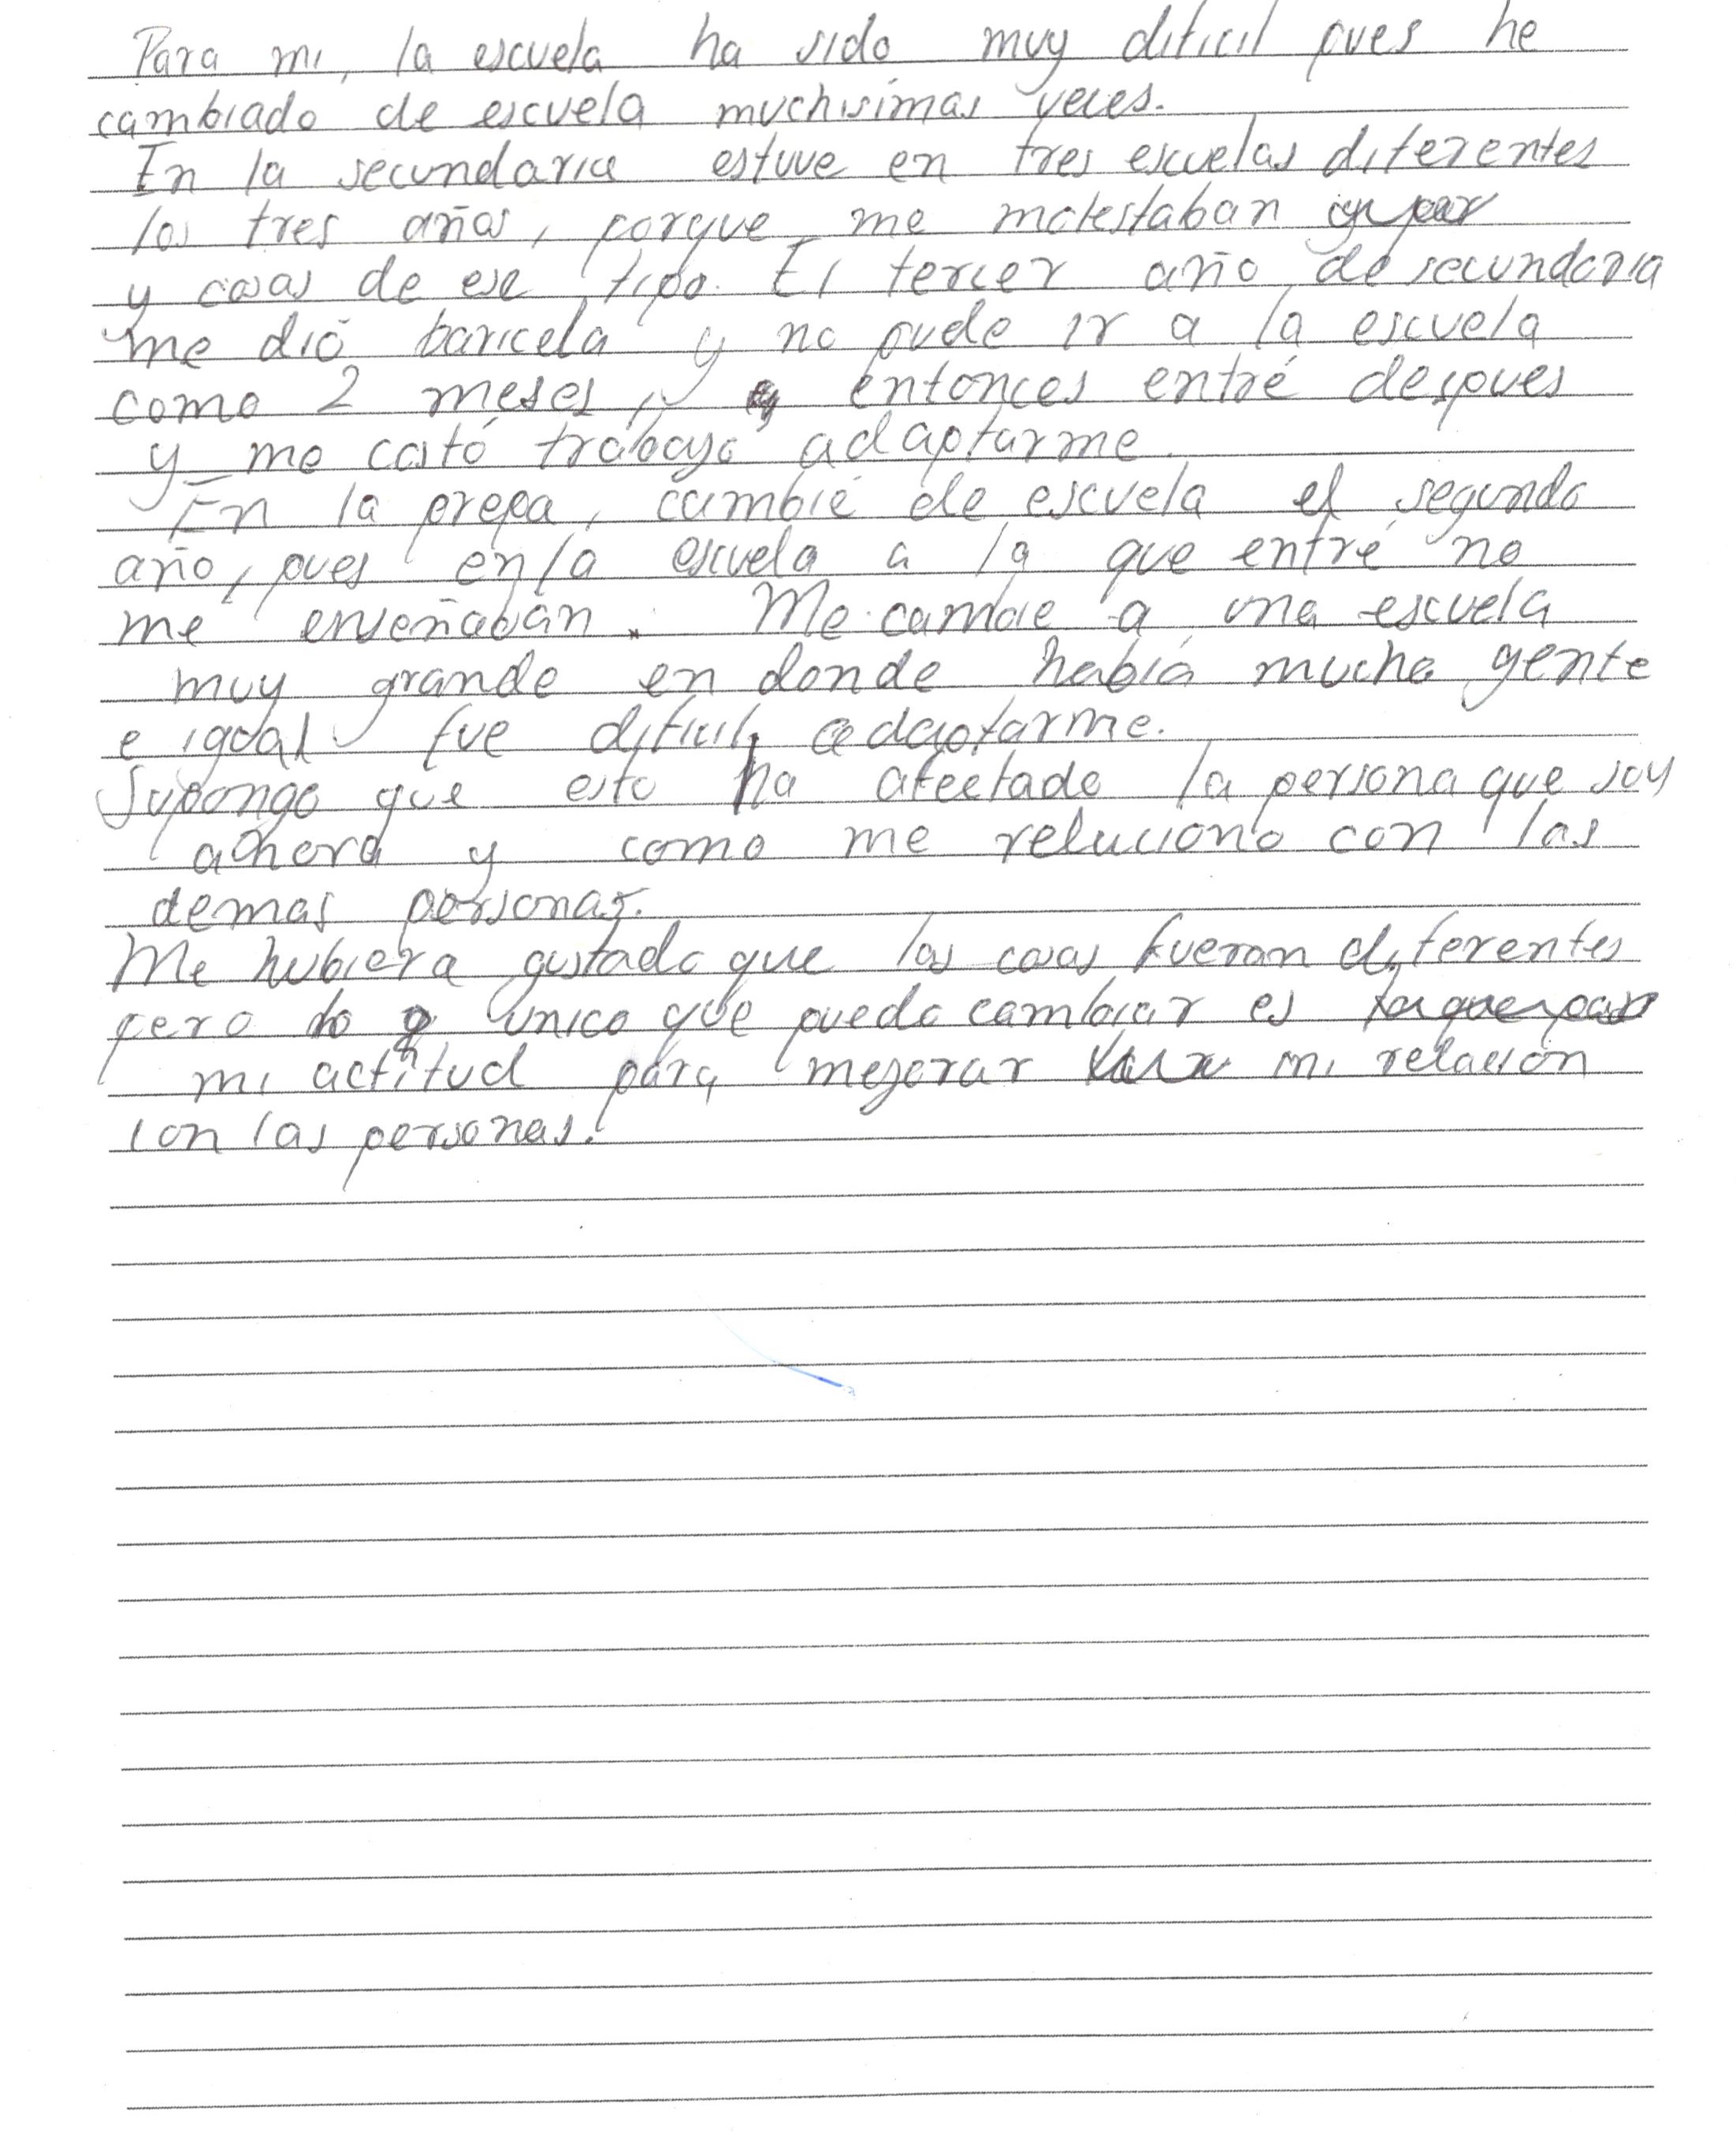 Para mi, la escuela ha sido muy dificil pues he
cambiado de escuela muchisimas veces.
En la secundaria estuve en tres escuelas diferentes
los tres años, porque me molestaban
y cosas de ese tipo. El tercer año de secundaria
me dió baricela y no pude ir a la escuela
como 2 meses, y entonces entré despues
y me costó trabajo adaptarme.
En la prepa, cambié de escuela el segundo
año, pues en la escuela a la que entré no
me enseñaban. Me cambie a una escuela
muy grande en donde había mucha gente
e igual fue dificil adaptarme.
Supongo que esto ha afectado la persona que soy
ahora y como me relaciono con las
demas personas.
Me hubiera gustado que las cosas fueran diferentes
pero lo unico que puedo cambiar es
mi actitud para mejorar mi relación
con las personas.